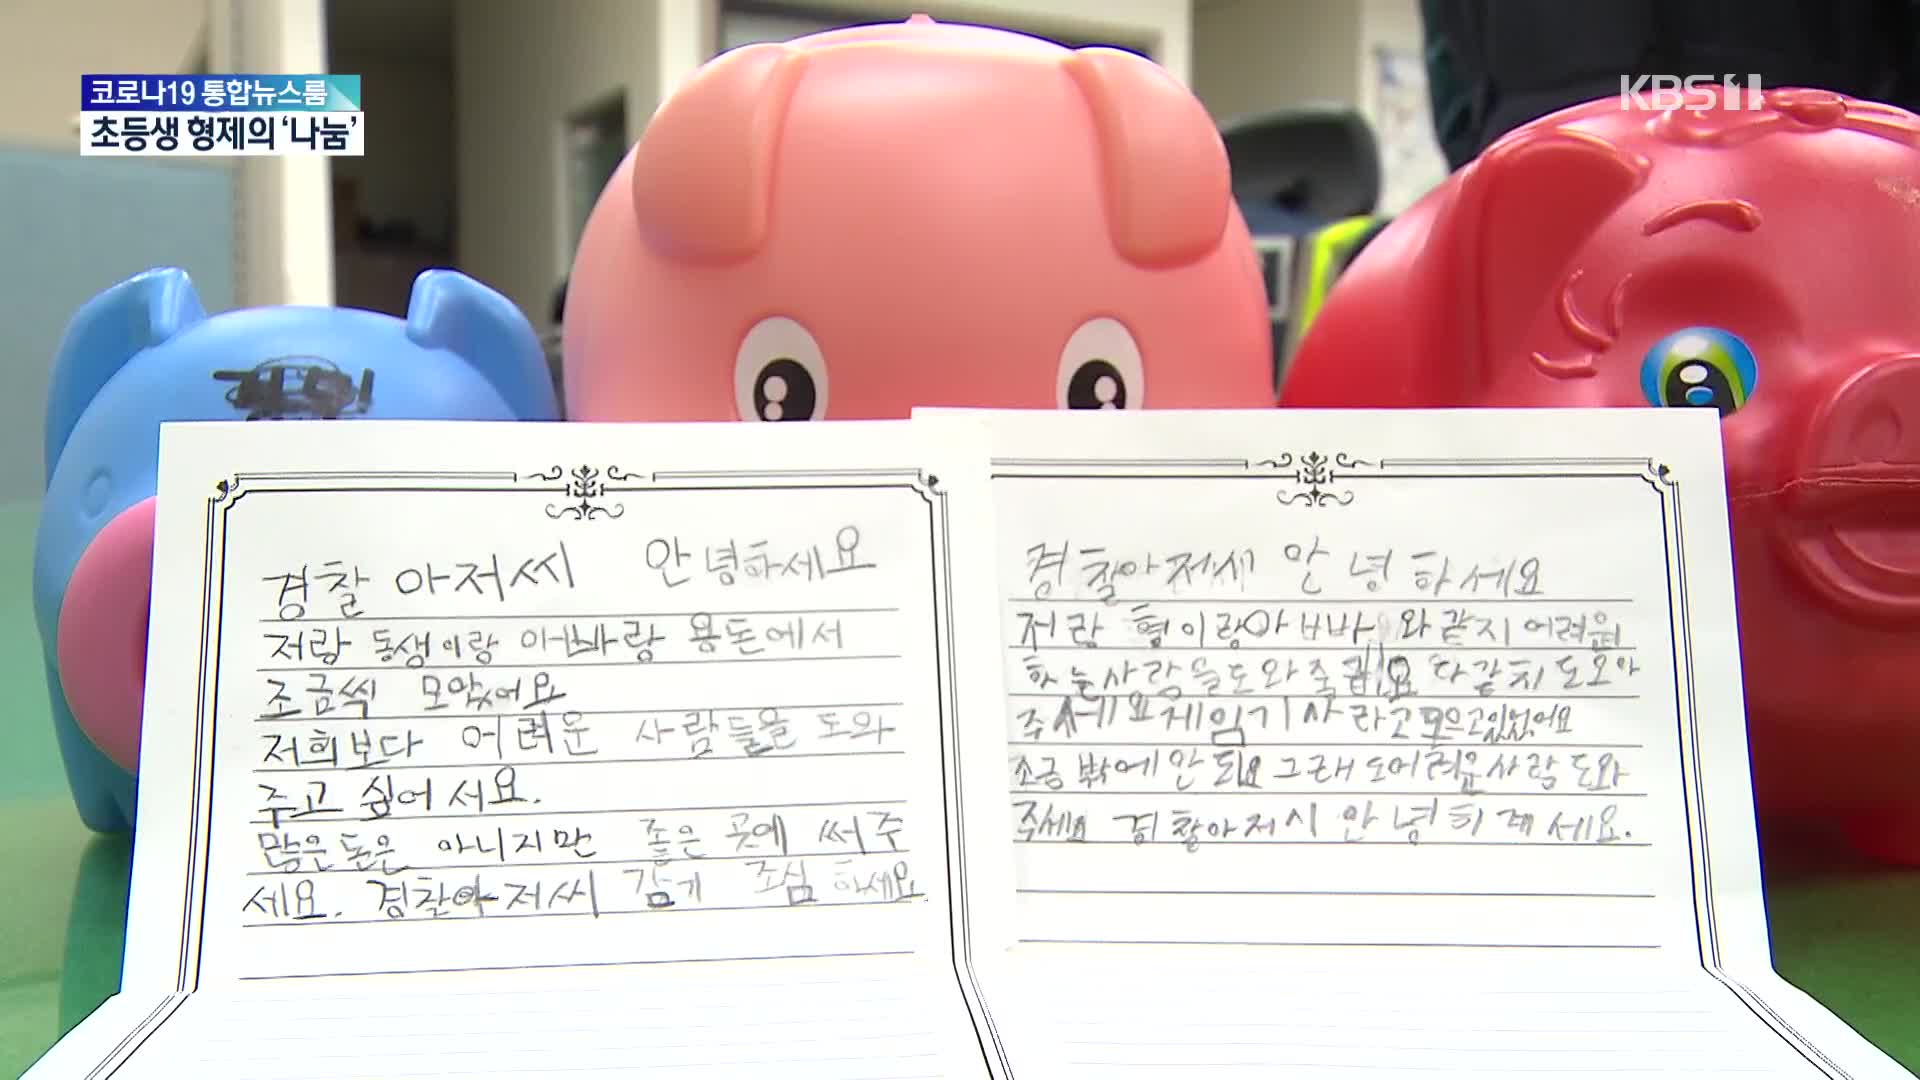 코로나19 통합뉴스룸
초등생 형제의 ‘나눔’
KBS 1
경찰 아저씨 안녕하세요
저랑 동생이랑 아빠랑 용돈에서
조금씩 모았어요
저희보다 어려운 사람들을 도와
주고 싶어서요.
많은돈은 아니지만 좋은 곳에 써주
세요. 경찰아저씨 감기 조심하세요
경찰아저씨 안녕하세요
저랑 형이랑아빠와같지 어려워
하는사람들도와줄
다같치도오아
주세요게임기사라고모으고있었어요
조금밖에안되요그래도어려운사람도와
주세요 경찰아저시안녕히게세요.